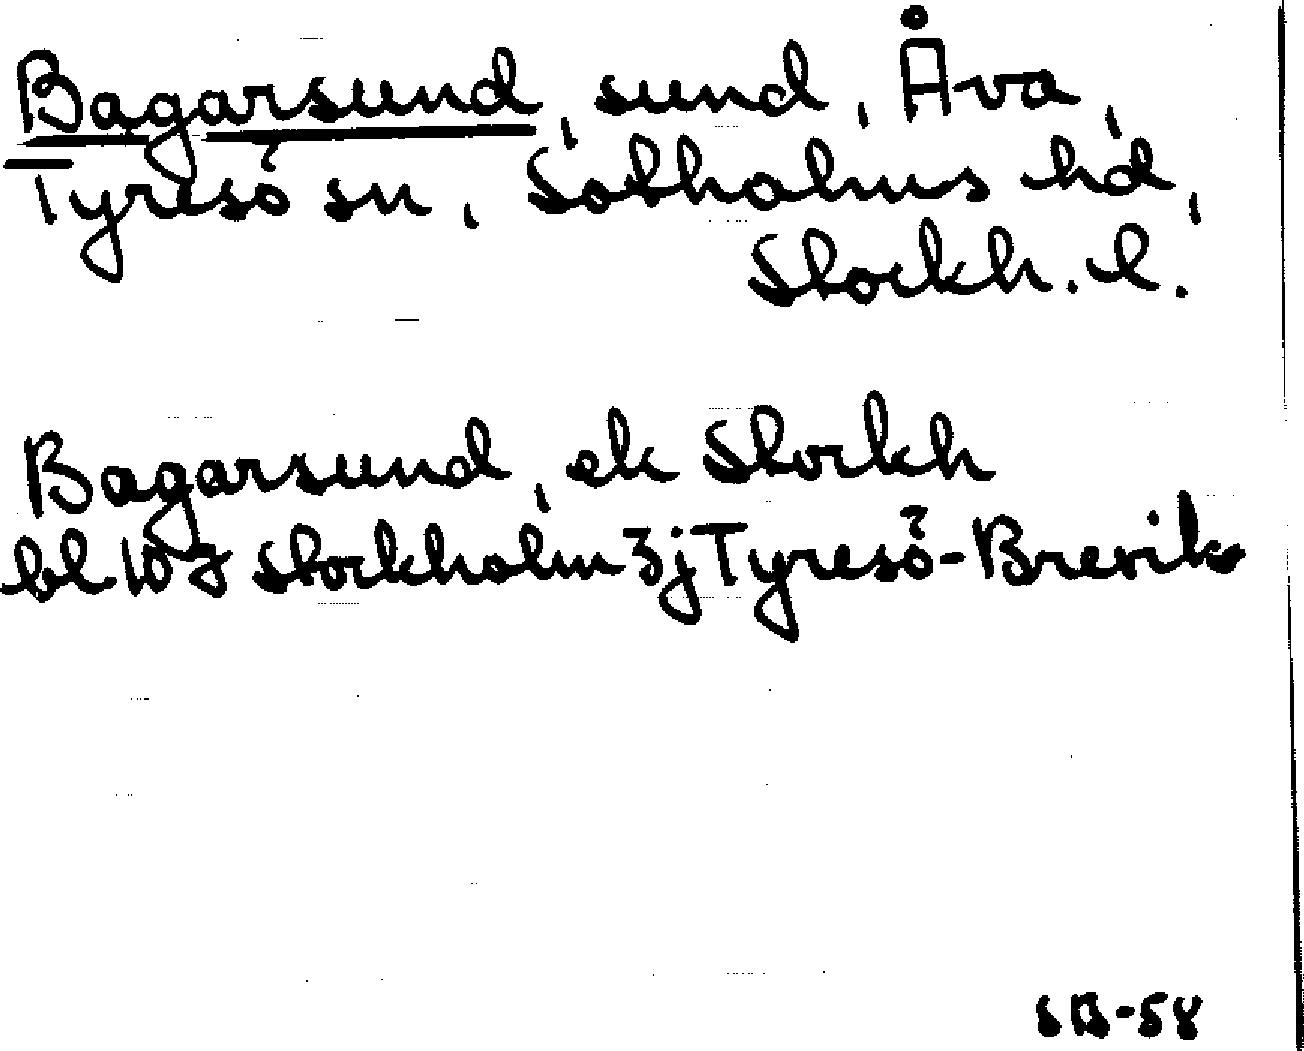 Bagarsund, sund, Åva,
Tyresö sn, Sotholms hd,
Stockh. l.
Bagarsund, ek Stockh
bl 10 I Stockholm 3j Tyresö-Brevik
SB-58